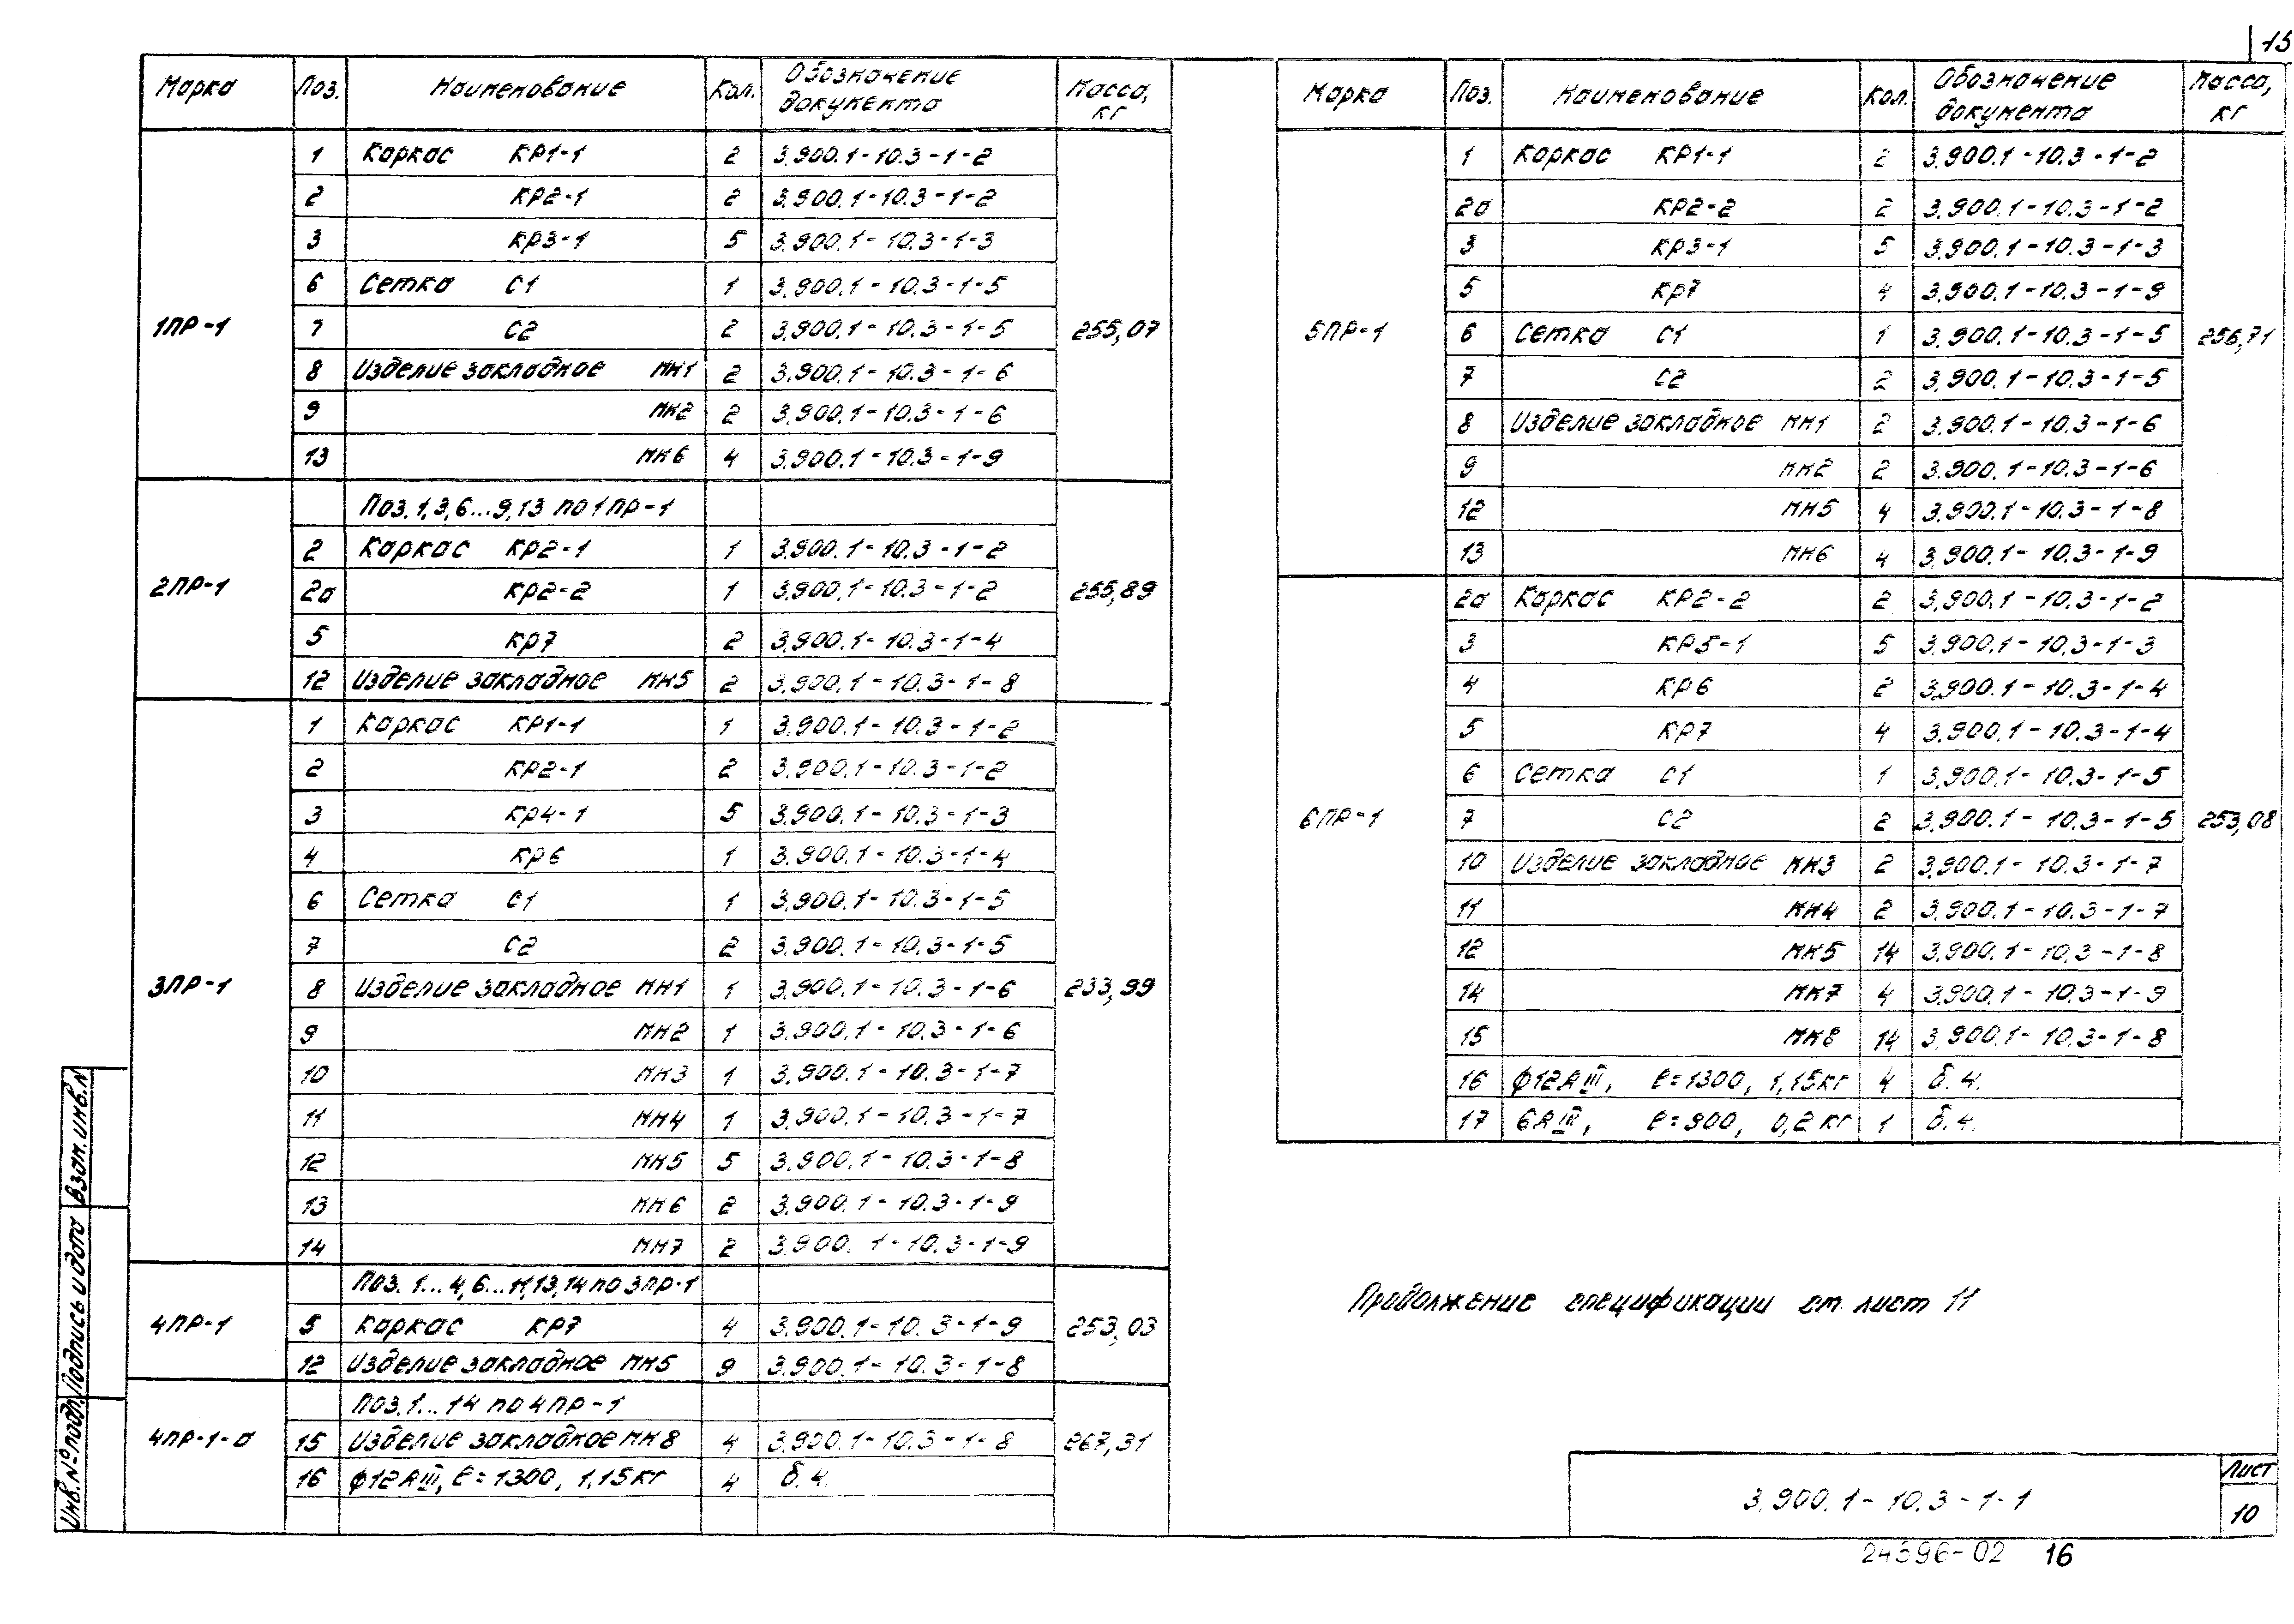 15
Марка Поз. Наименование Кол. Обозначение документа Масса, кг
1ПР-1 255,07
1 Каркас КР1-1 2 3.900.1-10.3-1-2
2 КР2-1 2 3.900.1-10.3-1-2
3 КР3-1 5 3.900.1-10.3-1-3
6 Сетка С1 1 3.900.1-10.3-1-5
7 С2 2 3.900.1-10.3-1-5
8 Изделие закладное МН1 2 3.900.1-10.3-1-6
9 МН2 2 3.900.1-10.3-1-6
13 МН6 4 3.900.1-10.3-1-9
2ПР-1 255,89
Поз. 1,3,6...9,13 по 1ПР-1
2 Каркас КР2-1 1 3.900.1-10.3-1-2
2а КР2-2 1 3.900.1-10.3-1-2
5 КР7 2 3.900.1-10.3-1-4
12 Изделие закладное МН5 2 3.900.1-10.3-1-8
3ПР-1 233,99
1 Каркас КР1-1 1 3.900.1-10.3-1-2
2 КР2-1 2 3.900.1-10.3-1-2
3 КР4-1 5 3.900.1-10.3-1-3
4 КР6 1 3.900.1-10.3-1-4
6 Сетка С1 1 3.900.1-10.3-1-5
7 С2 2 3.900.1-10.3-1-5
8 Изделие закладное МН1 1 3.900.1-10.3-1-6
9 МН2 1 3.900.1-10.3-1-6
10 МН3 1 3.900.1-10.3-1-7
11 МН4 1 3.900.1-10.3-1-7
12 МН5 5 3.900.1-10.3-1-8
13 МН6 2 3.900.1-10.3-1-9
14 МН7 2 3.900.1-10.3-1-9
4ПР-1 253,03
Поз. 1...4, 6...11,13,14 по 3ПР-1
5 Каркас КР7 4 3.900.1-10.3-1-9
12 Изделие закладное МН5 9 3.900.1-10.3-1-8
4ПР-1-а 267,31
Поз.1...14 по 4ПР-1
15 Изделие закладное МН8 4 3.900.1-10.3-1-8
16 ф12АIII, ℓ=1300, 1,15кг 4 б.ч.
Марка Поз. Наименование Кол. Обозначение документа Масса, кг
5ПР-1 256,71
1 Каркас КР1-1 2 3.900.1-10.3-1-2
2а КР2-2 2 3.900.1-10.3-1-2
3 КР3-1 5 3.900.1-10.3-1-3
5 КР7 4 3.900.1-10.3-1-9
6 Сетка С1 1 3.900.1-10.3-1-5
7 С2 2 3.900.1-10.3-1-5
8 Изделие закладное МН1 2 3.900.1-10.3-1-6
9 МН2 2 3.900.1-10.3-1-6
12 МН5 4 3.900.1-10.3-1-8
13 МН6 4 3.900.1-10.3-1-9
6ПР-1 253,08
2а Каркас КР2-2 2 3.900.1-10.3-1-2
3 КР5-1 5 3.900.1-10.3-1-3
4 КР6 2 3.900.1-10.3-1-4
5 КР7 4 3.900.1-10.3-1-4
6 Сетка С1 1 3.900.1-10.3-1-5
7 С2 2 3.900.1-10.3-1-5
10 Изделие закладное МН3 2 3.900.1-10.3-1-7
11 МН4 2 3.900.1-10.3-1-7
12 МН5 14 3.900.1-10.3-1-8
14 МН7 4 3.900.1-10.3-1-9
15 МН8 14 3.900.1-10.3-1-8
16 ф12АIII, ℓ=1300, 1,15кг 4 б.ч.
17 6АIII, ℓ=900, 0,2кг 1 б.ч.
Продолжение спецификации см. лист 11
3.900.1-10.3-1-1
Лист
10
24396-02 16
Инв.№подл. Подпись и дата Взам.инв.N